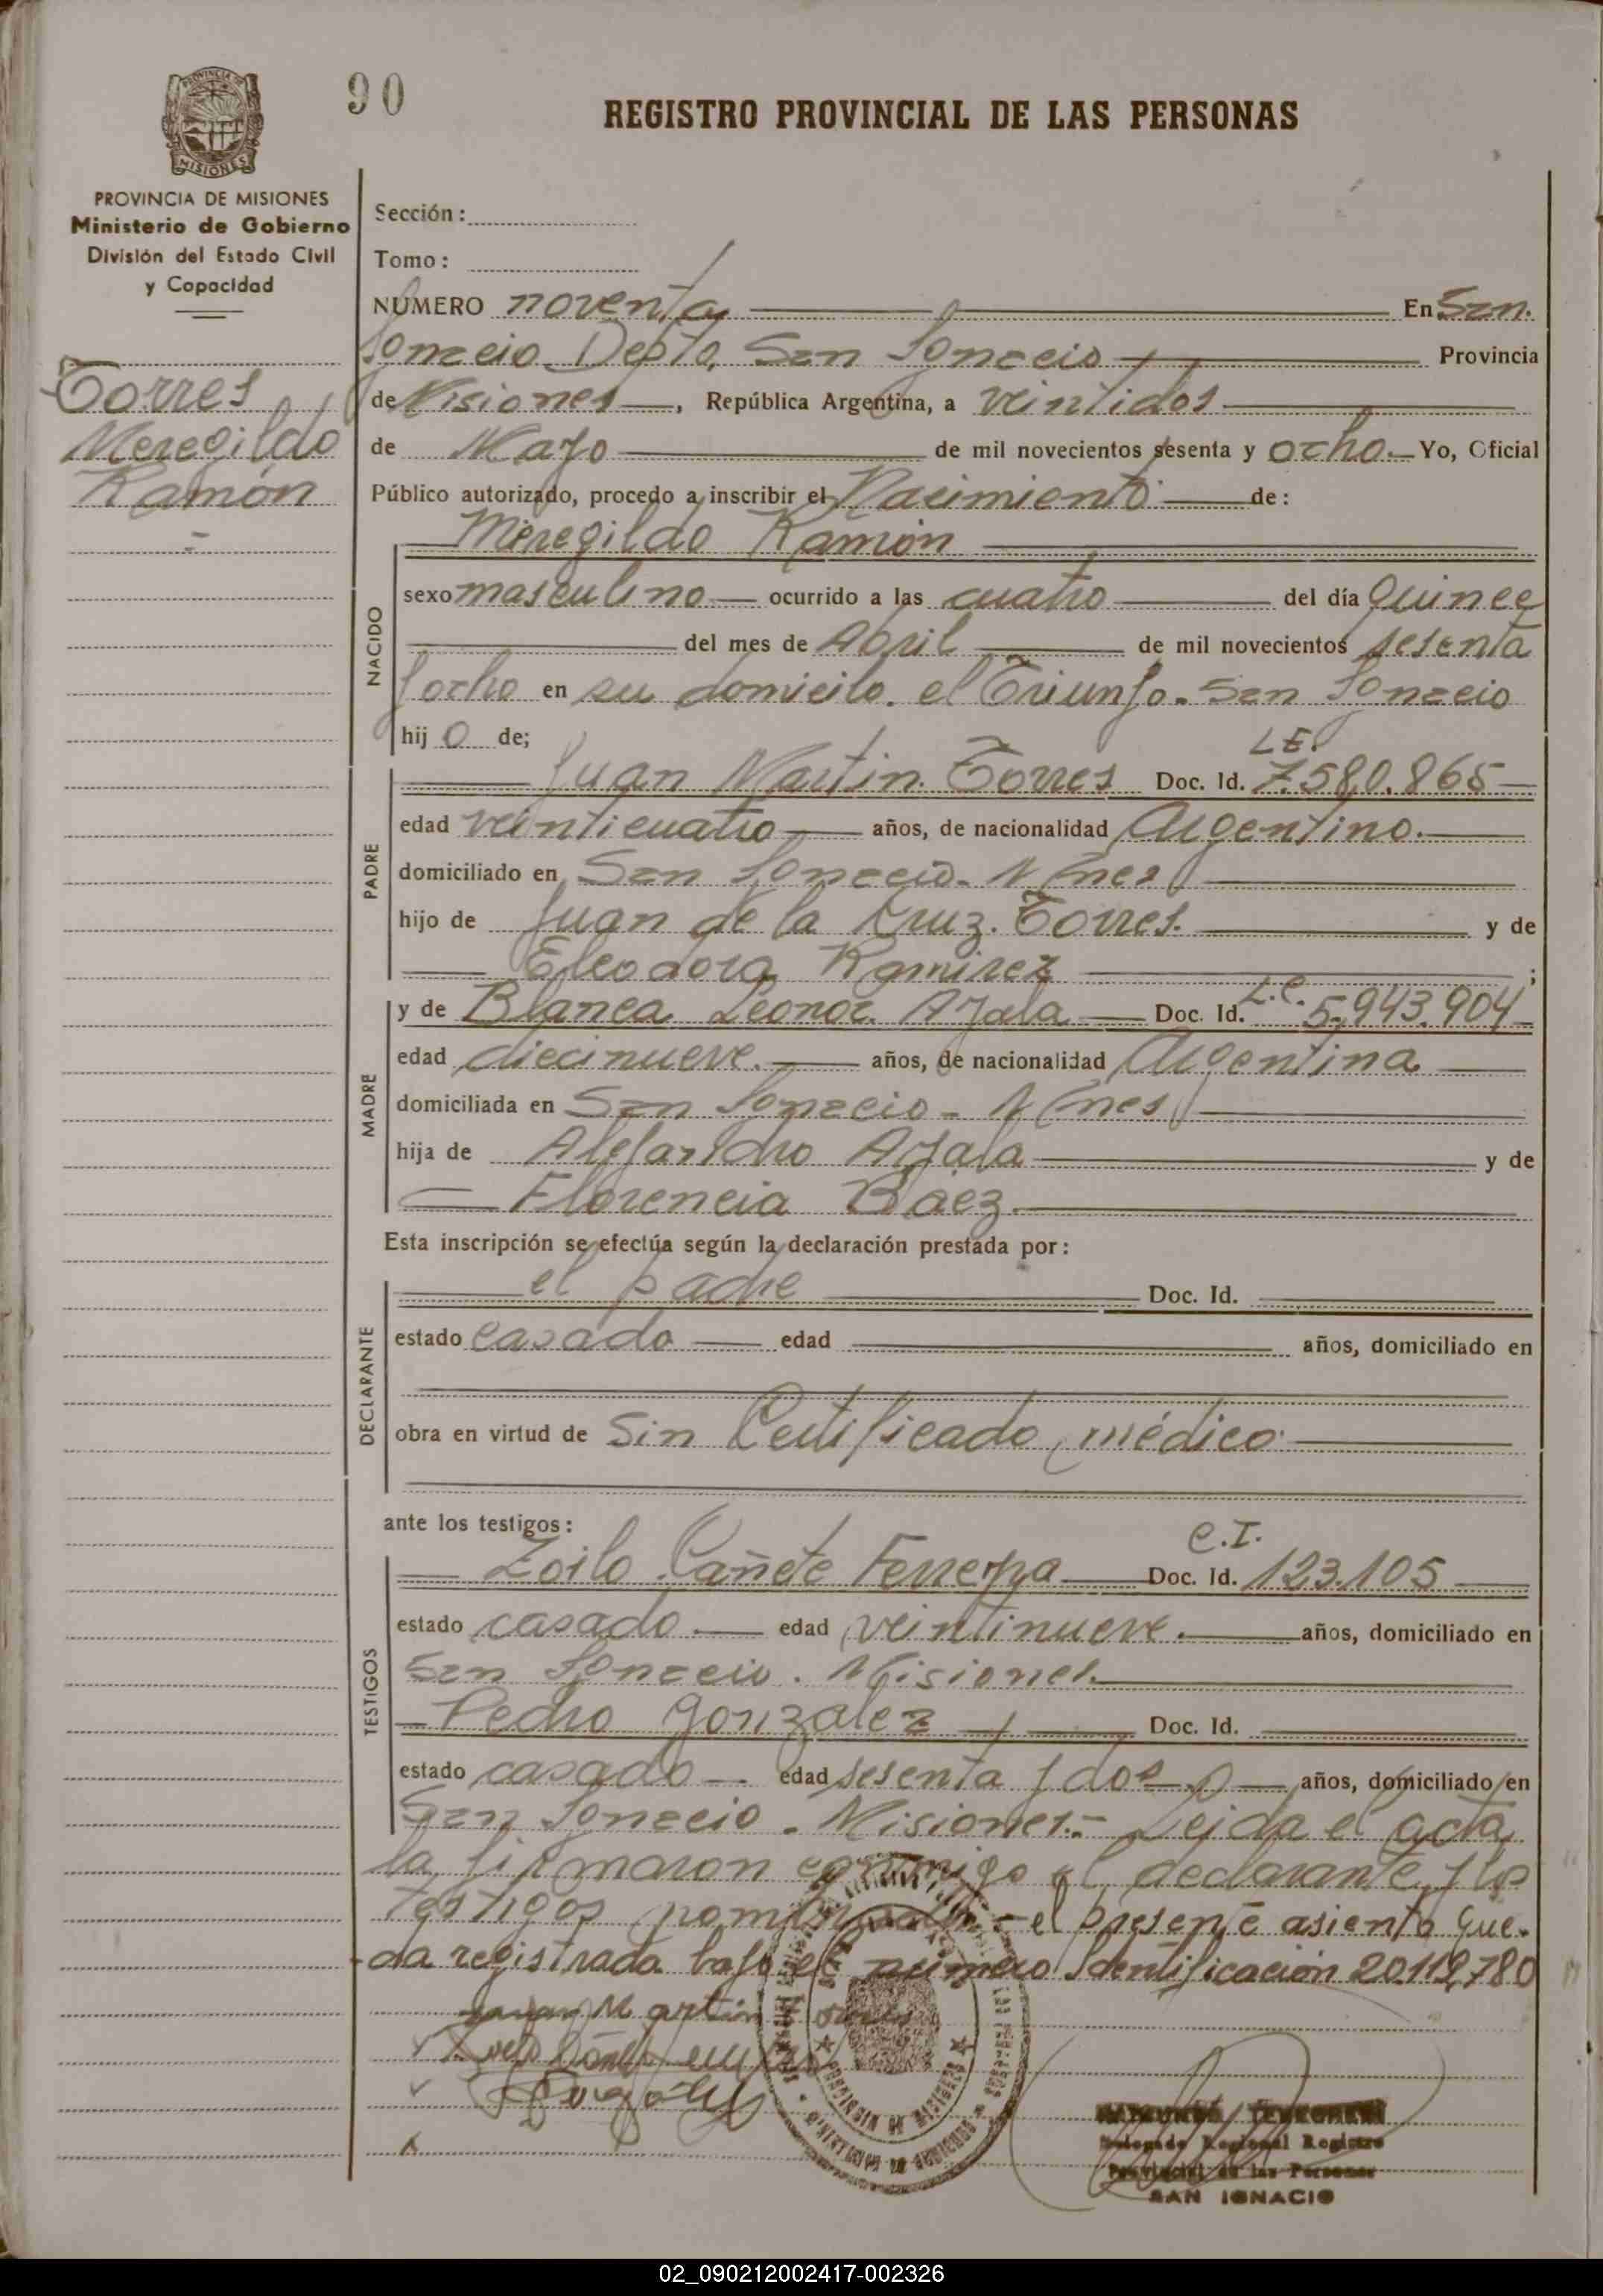 90
REGISTRO PROVINCIAL DE LAS PERSONAS
PROVINCIA DE
MISIONES
PROVINCIA DE MISIONES
Ministerio de Gobierno
División del Estado Civil
y Capacidad
Torres
Meregildo
Ramón
Sección:
Tomo:
NUMERO noventa En San.
Ignacio Depto. San Ignacio Provincia
de Misiones, República Argentina, a veintidos
de Mayo de mil novecientos sesenta y ocho. Yo, Oficial
Público autorizado, procedo a inscribir el Nacimiento de:
Meregildo Ramón
NACIDO
sexo masculino ocurrido a las cuatro del día Quince
del mes de Abril de mil novecientos sesenta
y ocho en su domicilo. el Triunfo. San Ignacio
hij o de;
PADRE
L.E.
Juan Martin. Torres Doc. Id. 7.580.865
edad veinticuatro años, de nacionalidad Argentino.
domiciliado en San Ignacio. Mnes
hijo de Juan de la Cruz. Torres. y de
Eleodora Ramirez ;
MADRE
y de Blanca Leonor. Ayala Doc. Id. L.C. 5.943.904
edad diecinueve. años, de nacionalidad Argentina
domiciliada en San Ignacio - Mnes
hija de Alejandro Ayala y de
Florencia Báez.
Esta inscripción se efectúa según la declaración prestada por:
DECLARANTE
el padre Doc. Id.
estado casado edad años, domiciliado en
obra en virtud de Sin Certificado médico
ante los testigos:
TESTIGOS
C.I.
Zoilo Cañete Ferreyra Doc. Id. 123.105
estado casado edad veintinueve. años, domiciliado en
San Ignacio. Misiones.
Pedro Gonzalez y Doc. Id.
estado casado edad sesenta y dos años, domiciliado en
San Ignacio. Misiones.- Leida el acta
la firmaron conmigo el declarante y los
testigos nombrados - el presente asiento que-
da registrada bajo el número Identificación 20.119,780
Juan Martin Torres
Delegado Regional Registro
Provincial de las Personas
SAN IGNACIO
02_090212002417-002326